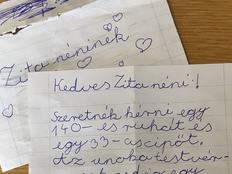 Zita néninek
Kedves Zita néni!
Szeretnék kérni egy
140-es ruhát és
egy 33-as cipőt.
Az unokatestvér-
egy